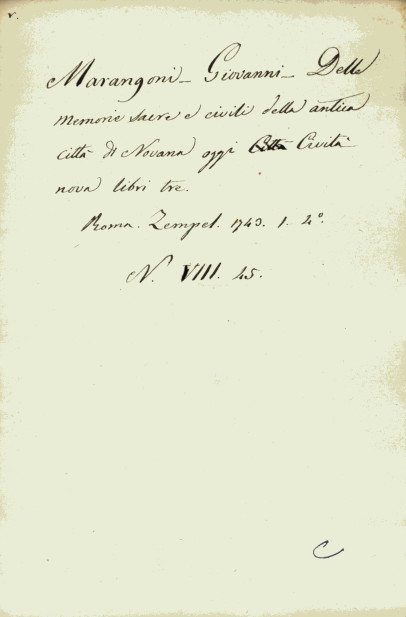 v.
Marangoni_ Giovanni_ Delle
memorie sacre e civili della antica
città di Novana oggi Civita
nova libri tre.
Roma. Zempel. 1743. 1. 4°.
N. VIII. 45.
C